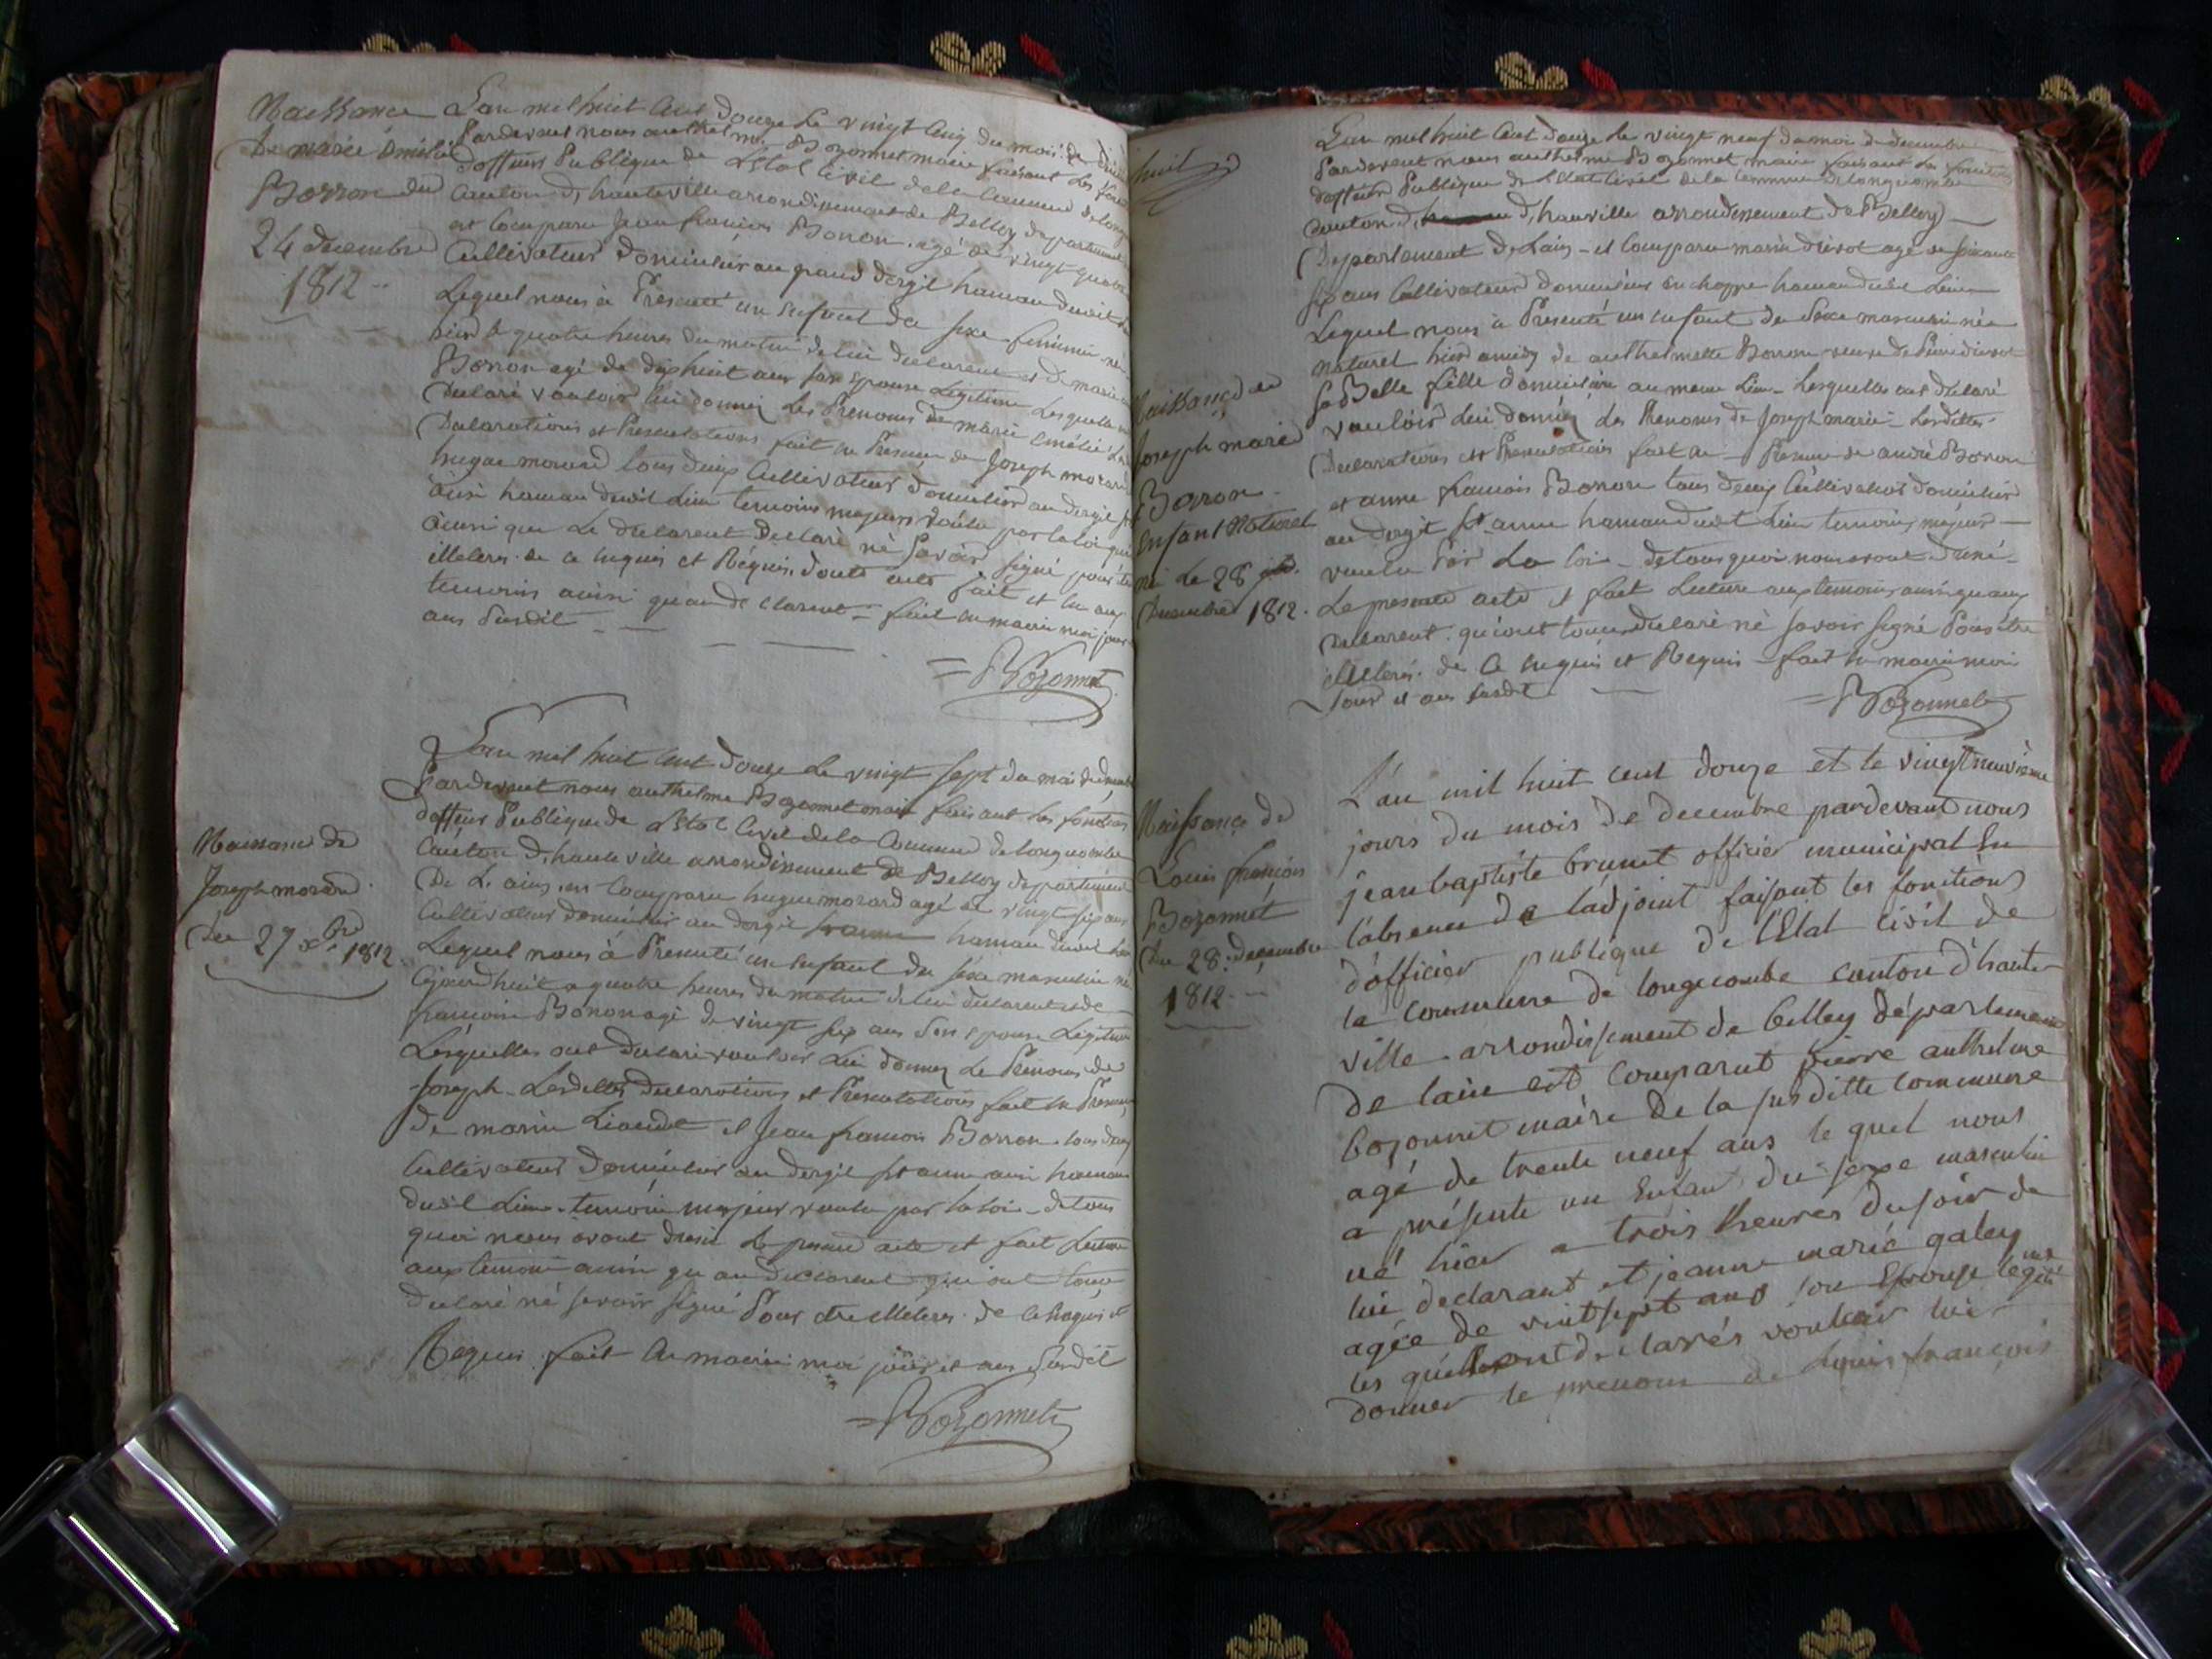 Naissance
De marie émelie
Borron du
24 decembre
1812
L'an mil huit Cent Douze Le vingt Cinq du mois de
Pardevant nous anthelme Bozonnet maire faisant Les
dofficier Publique de L'Etat Civil de la Commune de
Canton d'hauteville arrondissement de Belley departement
est Comparu Jean françois Borron agé de vingt quatre
Cultivateur Domicilié au grand dergit hamau dudit
Lequel nous à Presenté un Enfant de sexe feminin né
hier à quatre heures du matin de lui declarent et de marie
Borron agé de dix huit ans son Epouse Legitime Lesquelle
Declaré vouloir lui donner Les Prenoms de marie emélie
Declarations et Presentations fait en Presence de Joseph morard
hugue morard tous deux Cultivateur domicilier au dergit
ausi hamau dudit Lieu temoins majeurs voulu par la loi qui
ainsi que Le declarent Declaré né savoir signé pour être
illeteres de Ce enquis et Réquis donts acte fait et lu aux
temoins ainsi qu'au declarent fait en mairie moi jour
ans Susdit
Bozonnet
Naissance de
Joseph morard
Du 27 xbre 1812
L'an mil huit Cent Douze Le vingt sept du moi de decembre
Pardevant nous anthelme Bozonnet maire faisant Les fonctions
dofficier Publique de L'Etat Civil de la Commune de longecombe
Canton d'hauteville arrondissement de Belley departement
De L'ains est Comparu hugue morard agé de vingt six ans
Cultivateur domicilier au dergit hamau dudit
Lequel nous à Presenté un Enfant du sexe masculin né
à quatre heures du matin de lui declarent et de
francoise Borron agé de vingt six ans Son Epouse Legitime
Lesquelles ont Declaré vouloir lui donner Le Prenoms de
Joseph Lesdittes Declarations et Presentations fait en Presence
De marin Liaudet et Jean francois Borron tous deux
Cultivateur Domicilier au dergit st anne ausi hamau
dudit Lieu temoin majeur voulu par la loi de tous
quoi nous avont dressé Le present acte et fait Lecture
aux temoin ainsi qu'au declarent qui ont tous
declaré né savoir signé Pour être illeteres de Ce Enquis et
Requis fait en mairie moi jour et ans Susdit
Bozonnet
huit
Naissance de
Joseph marie
Borron
Enfant Naturel
né Le 28
Decembre 1812
L'an mil huit Cent Douze Le vingt neuf du moi de decembre
Pardevant nous anthelme Bozonnet maire faisant Les fonctions
dofficier Publique de L'Etat Civil de la Commune de longecombe
Canton d'hauville arrondissement de Belley
Departement de L'ains et Comparu marin agé de soixante
six ans Cultivateur domicilier en hamau dudit Lieu
Lequel nous à Presenté un Enfant de sexe masculin née
naturel hier amidy de anthelmette Borron veuve de Pierre
sa Belle fille domiciliée au meme Lieu Lesquelle ont declaré
vouloir Lui donner Les Prenoms de Joseph marie Lesdittes
Declarations et Presentations fait en Presence de andré Borron
et anne francois Borron tous deux Cultivateur domicilier
au dergit st anne hamau dudit Lieu temoins majeur
voulu Par La loi de tous quoi nous avont dréssé
Le present acte et fait Lecture aux temoins ainsi quaux
Declarent qui ont tous declaré né savoir signé Pour être
illeteres de Ce enquis et Requis fait en mairie moi
Jour et ans susdit
Bozonnet
Naissance de
Louis françois
Bozonnet
Du 28 decembre
1812
L'an mil huit cent douze et le vingt neuvième
jours du mois de decembre pardevant nous
jean baptiste brunet officier municipal En
l'absence de l'adjoint faisant les fonctions
d'officier publique de l'Etat civil de
la commune de longecombe canton d'haute
ville arrondissement de belley département
de lain est comparut pierre anthelme
bozonnet maire de la susditte commune
agé de trente neuf ans le quel nous
a présenté un Enfant du sexe masculin
né hier a trois heures du soir de
lui declarant et jeanne marie galey
agée de vintsept ans son Epouse legitime
les quels ont declarés vouloir lui
donner le prenom de Louis françois